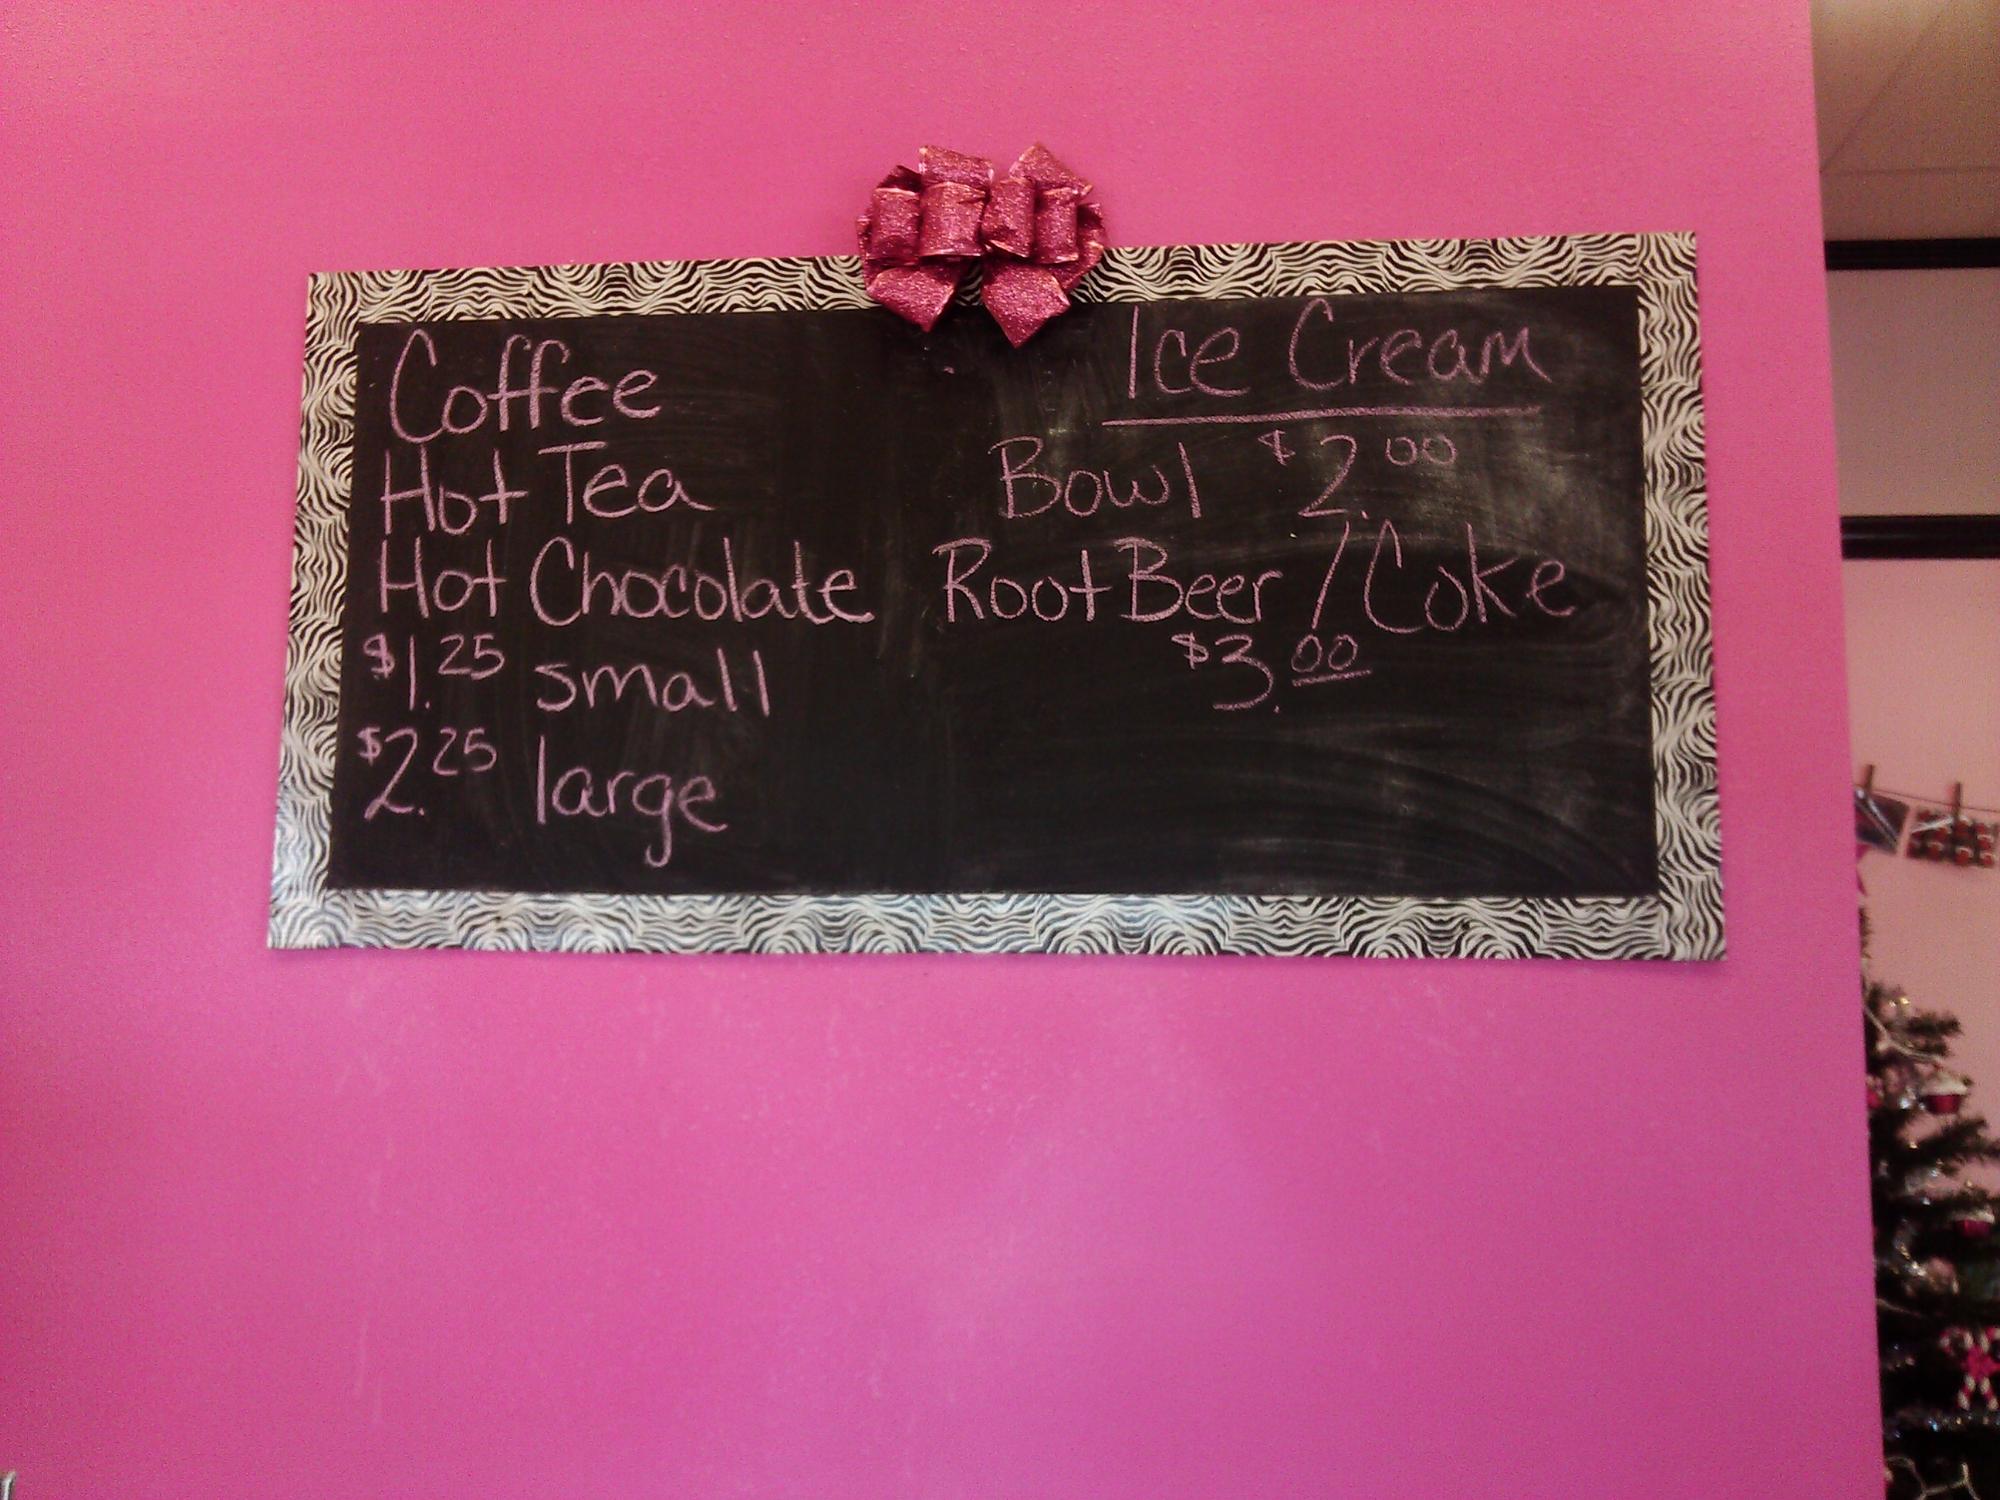 Coffee
Hot Tea
Hot Chocolate
$1.25 small
$2.25 large
Ice Cream
Bowl $2.00
Root Beer / Coke
$3.00